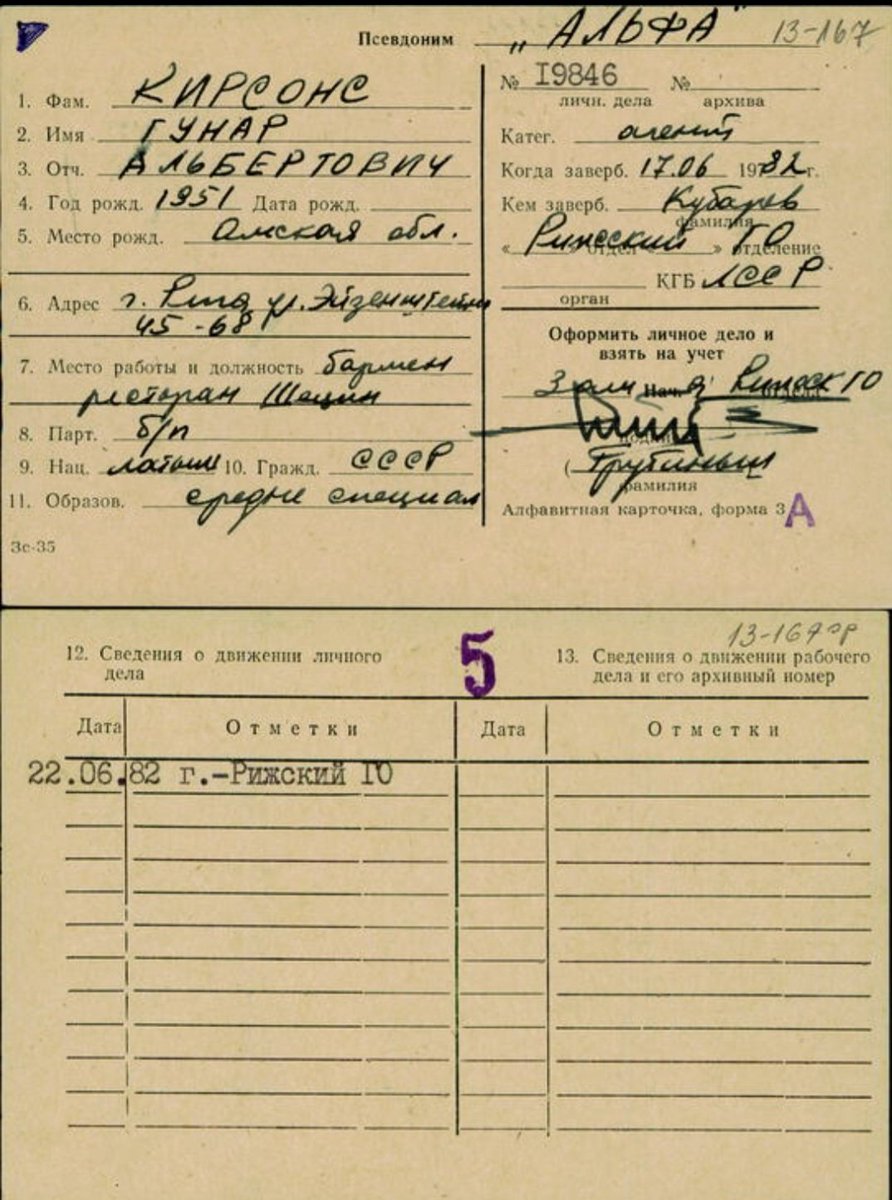 Псевдоним „АЛЬФА" 13-167
1. Фам. КИРСОНС
2. Имя ГУНАР
3. Отч. АЛЬБЕРТОВИЧ
4. Год рожд. 1951 Дата рожд.
5. Место рожд. Омская обл.
6. Адрес г. Рига ул. Эйзенштейна
45-68
7. Место работы и должность бармен
ресторан Щецин
8. Парт. б/п
9. Нац. латыш 10. Гражд. СССР
11. Образов. средне специал
Зс-35
№ I9846 №
личн. дела архива
Катег. агент
Когда заверб. 17.06 1982 г.
Кем заверб. Кубарев
фамилия
« Рижский » отдел « » ГО отделение
КГБ ЛССР
орган
Оформить личное дело и
взять на учет
Зам Нач. Рижск ГО отдела
подпись
( Трубиньш
фамилия
Алфавитная карточка, форма 3 А
13-167
5
12. Сведения о движении личного
дела
13. Сведения о движении рабочего
дела и его архивный номер
Дата Отметки Дата Отметки
22.06.82 г.-Рижский ГО